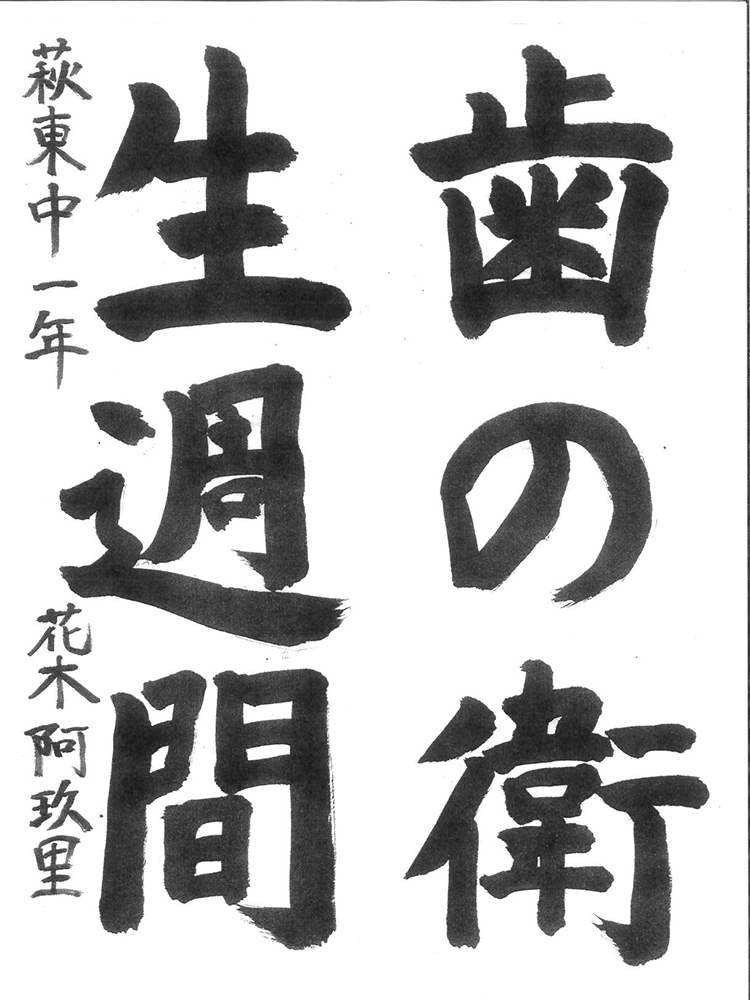 歯の衛
生週間
萩東中一年 花木阿玖里